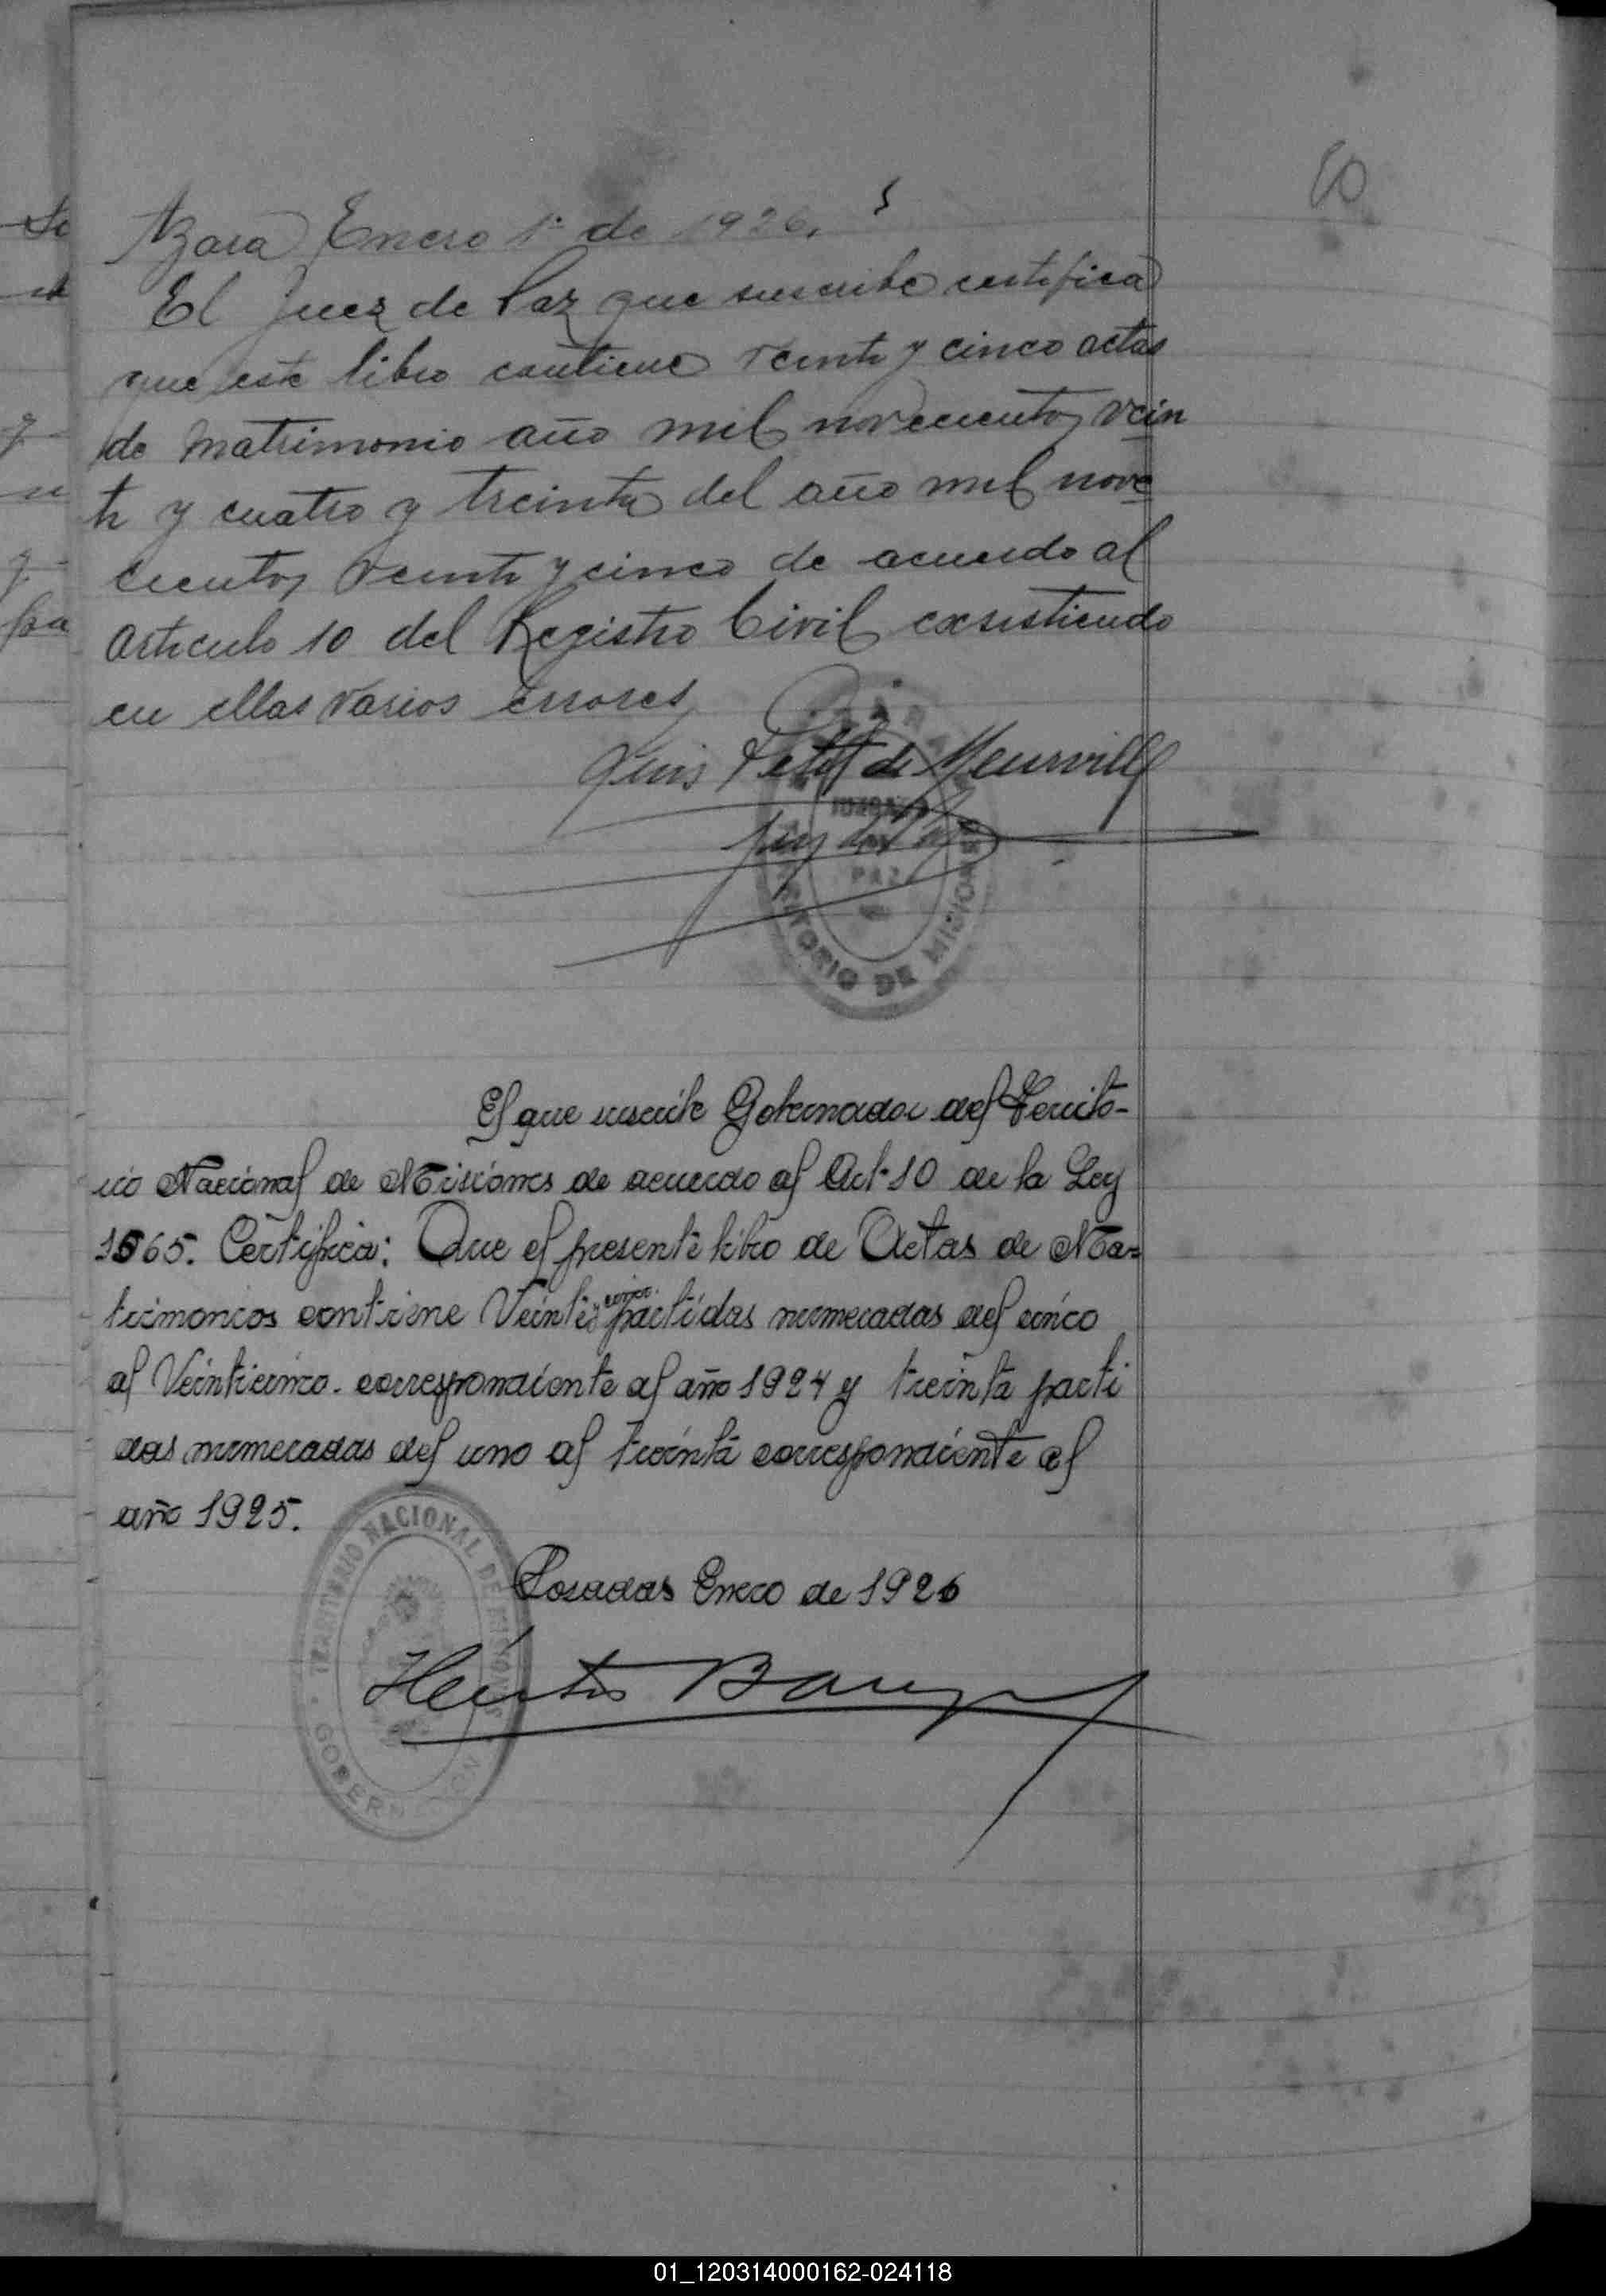 60
Azara Enero 1º de 1926.
El Juez de Paz que suscribe certifica
que este libro contiene veinte y cinco actas
de matrimonio año mil novecientos vein
te y cuatro y treinta del año mil nove
cientos veinte y cinco de acuerdo al
Articulo 10 del Registro Civil exsistiendo
en ellas varios errores
Luis Petit de Meurville
Juez de Paz
JUZGADO DE PAZ
TERRITORIO DE MISIONES
El que suscribe Gobernador del Territo-
rio Nacional de Misiones de acuerdo al Art. 10 de la Ley
1565. Certifica: Que el presente libro de Actas de Ma=
trimonios contiene Veinte y cinco partidas numeradas del cinco
al Veinticinco. correspondiente al año 1924 y treinta parti
das numeradas del uno al treinta correspondiente al
año 1925.
TERRITORIO NACIONAL DE MISIONES
GOBERNACION
Posadas Enero de 1926
Héctor
01_120314000162-024118